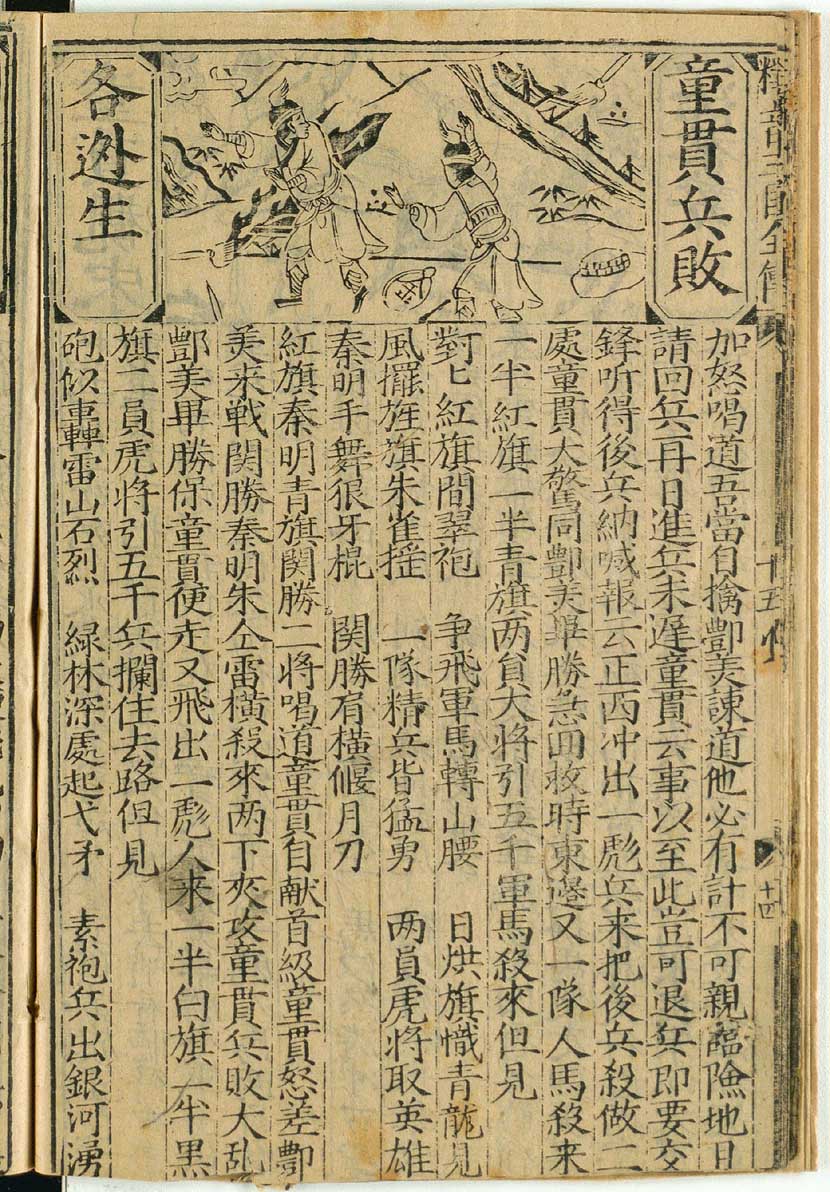 童貫兵敗
各迯生
加怒喝道吾當自擒酆美諫道他必有計不可親臨險地日
請回兵再日進兵未遲童貫云事以至此豈可退兵即要交
鋒听得後兵納喊報云正西冲出一彪兵来把後兵殺做二
處童貫大驚同酆美畢勝急囬救時東邊又一隊人馬殺来
一半紅旗一半青旗两貟大将引五千軍馬殺來但見
對匕紅旗間翠袍　争飛軍馬轉山腰　日烘旗幟青龍見
風擺旌旗朱雀揺　一隊精兵皆猛勇　两員虎将取英雄
秦明手舞狠牙棍　関勝肩横偃月刀
紅旗秦明青旗関勝二将喝道童貫自献首級童貫怒差酆
美来戦関勝秦明朱仝雷横殺來两下夾攻童貫兵敗大乱
酆美畢勝保童貫使走又飛出一彪人来一半白旗一半黒
旗二員虎将引五千兵攔住去路但見
砲似轟雷山石烈　緑林深處起弋矛　素袍兵出銀河湧
十五
十四